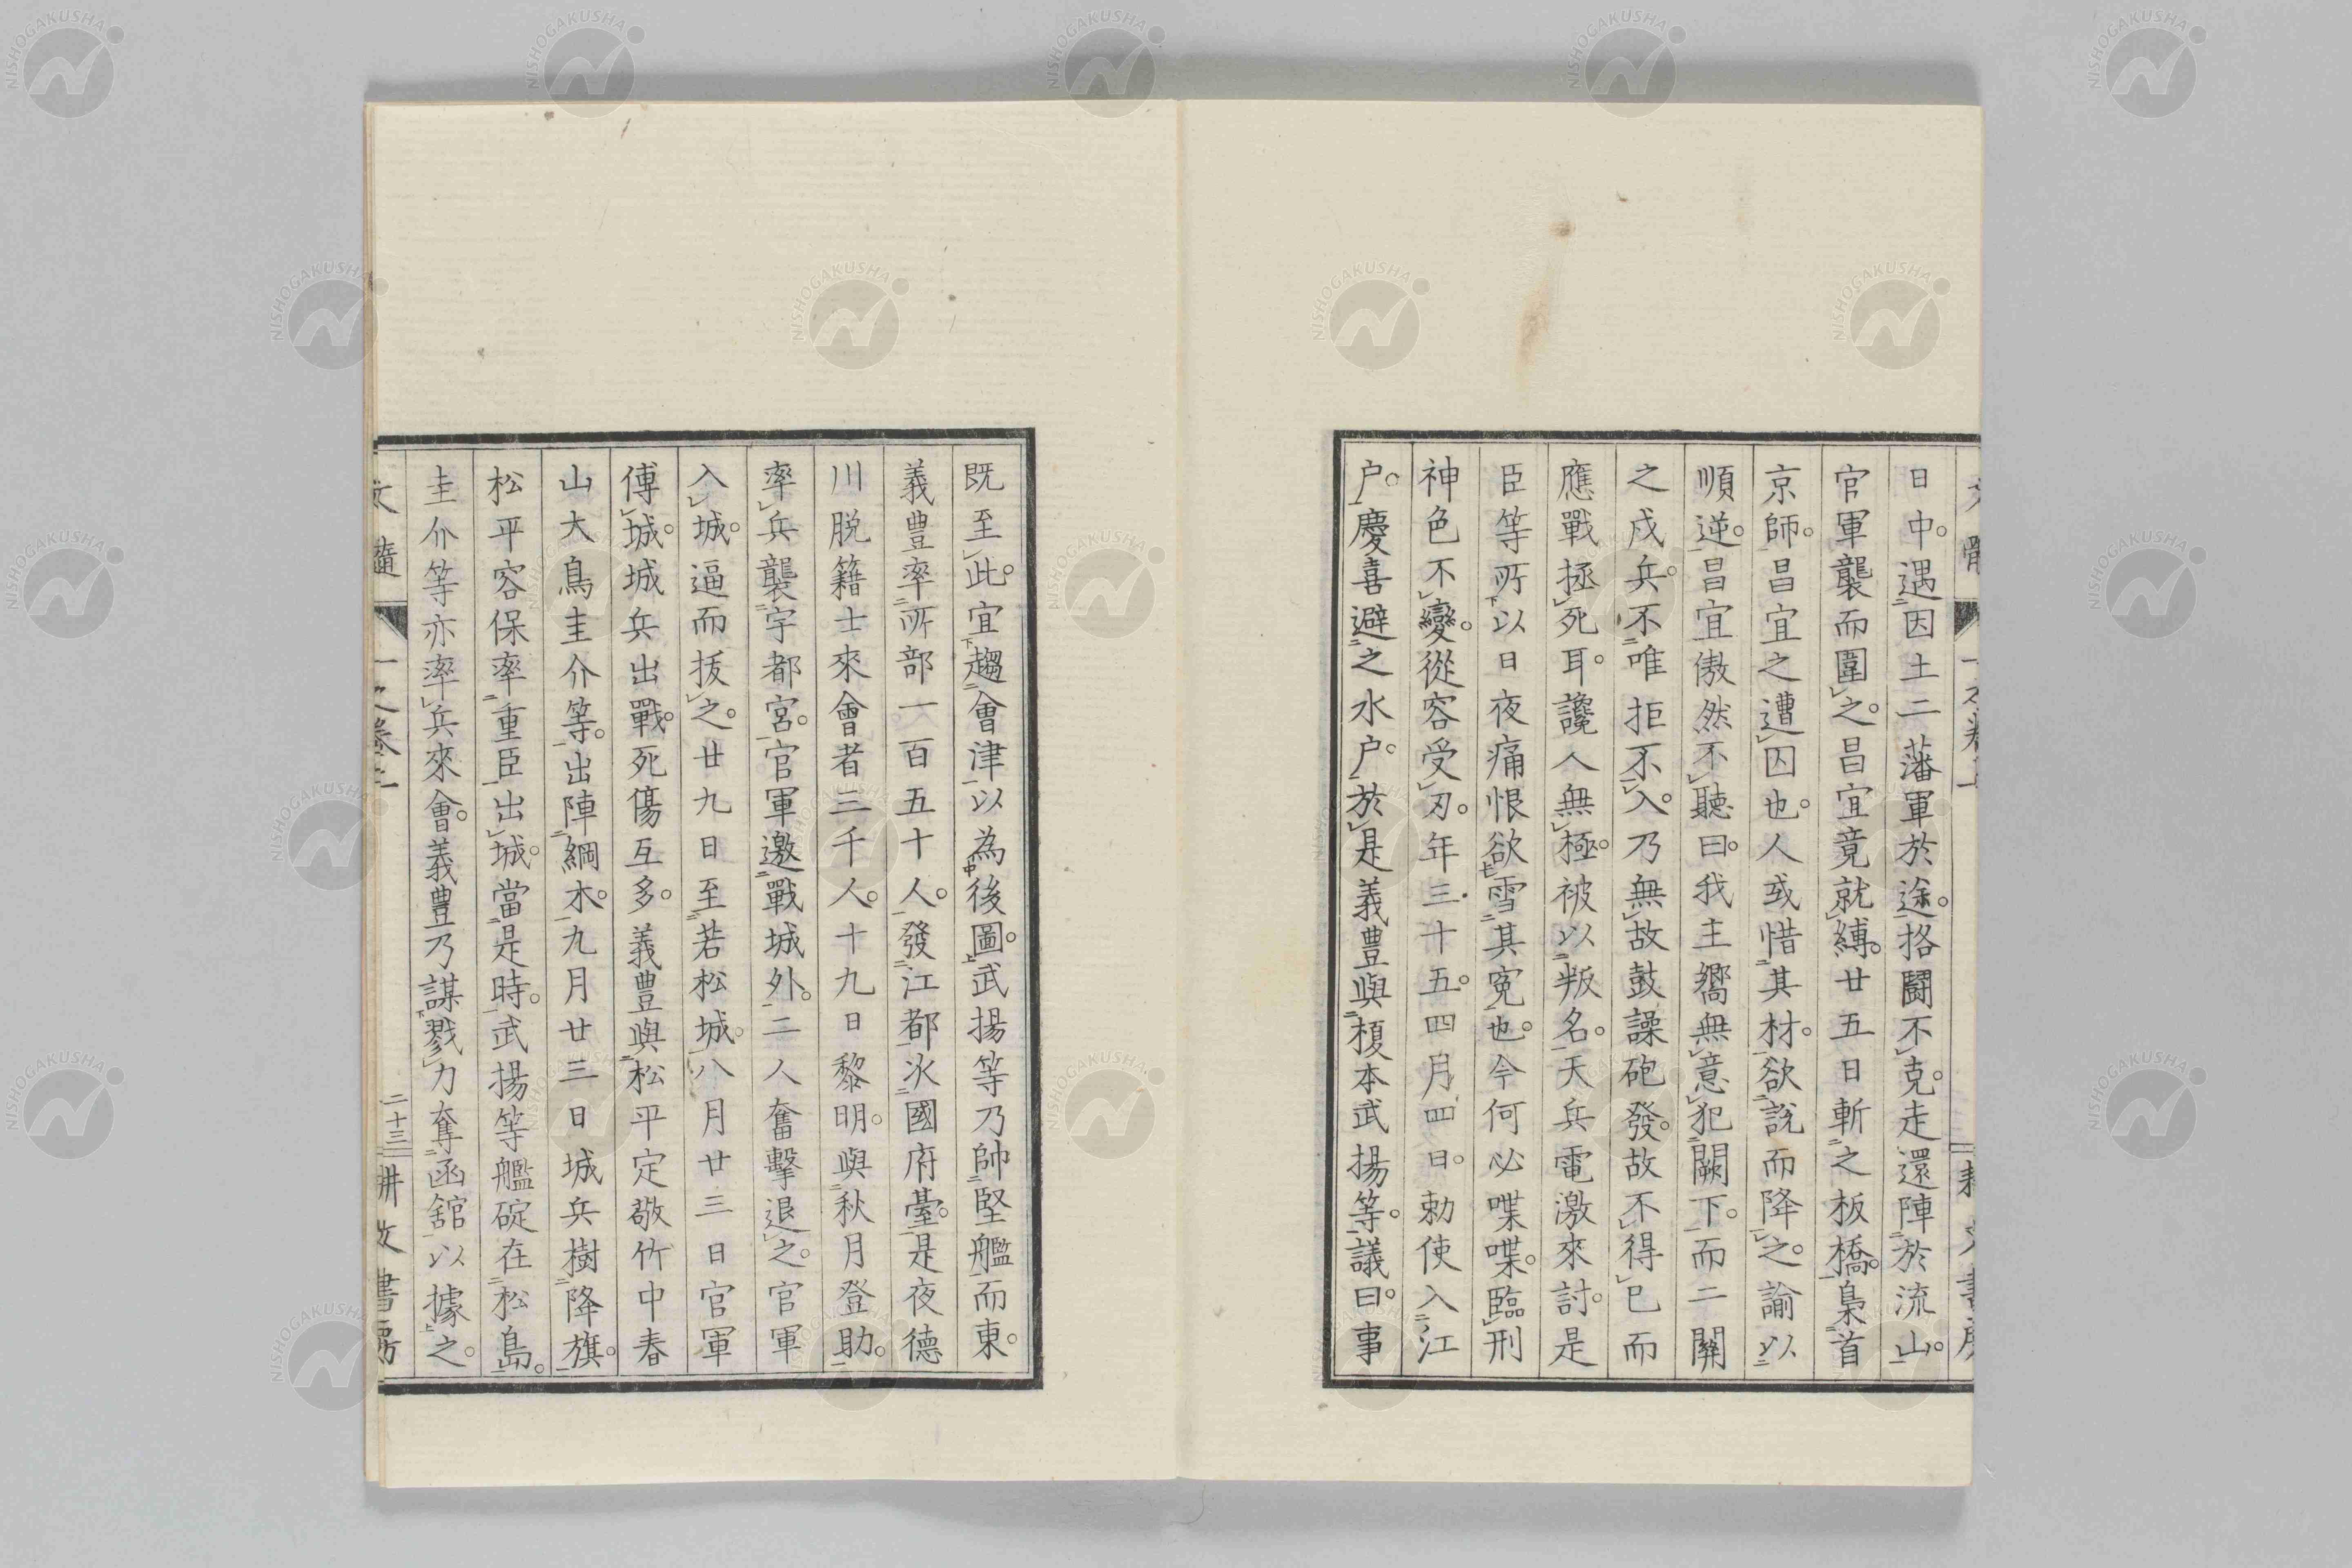 日中。遇因土二藩軍於途。格鬪不克。走還陣於流山。
官軍襲而圍之。昌宜竟就縛。廿五日斬之板橋。梟首
京師。昌宜之遭囚也。人或惜其材。欲説而降之。諭以
順逆。昌宜傲然不聽曰。我主嚮無意犯闕下。而二關
之戍兵。不唯拒不入。乃無故鼓譟砲發。故不得已而
應戰拯死耳。讒人無極。被以叛名。天兵電激來討。是
臣等所以日夜痛恨欲雪其冤也。今何必喋喋。臨刑
神色不變。從容受刃。年三十五。四月四日。勅使入江
户。慶喜避之水户。於是義豊與榎本武揚等。議曰。事
既至此。宜趨會津以為後圖。武揚等乃帥堅艦而東。
義豊率所部一百五十人。發江都。火國府臺。是夜德
川脱籍士來會者三千人。十九日黎明。與秋月登助。
率兵襲宇都宮。官軍邀戰城外。二人奮擊退之。官軍
入城。逼而拔之。廿九日至若松城。八月廿三日官軍
傅城。城兵出戰。死傷互多。義豊與松平定敬竹中春
山大鳥圭介等。出陣綱木。九月廿三日城兵樹降旗。
松平容保率重臣出城。當是時。武揚等艦碇在松島。
圭介等亦率兵來會。義豊乃謀戮力奪函舘以據之。
二十三